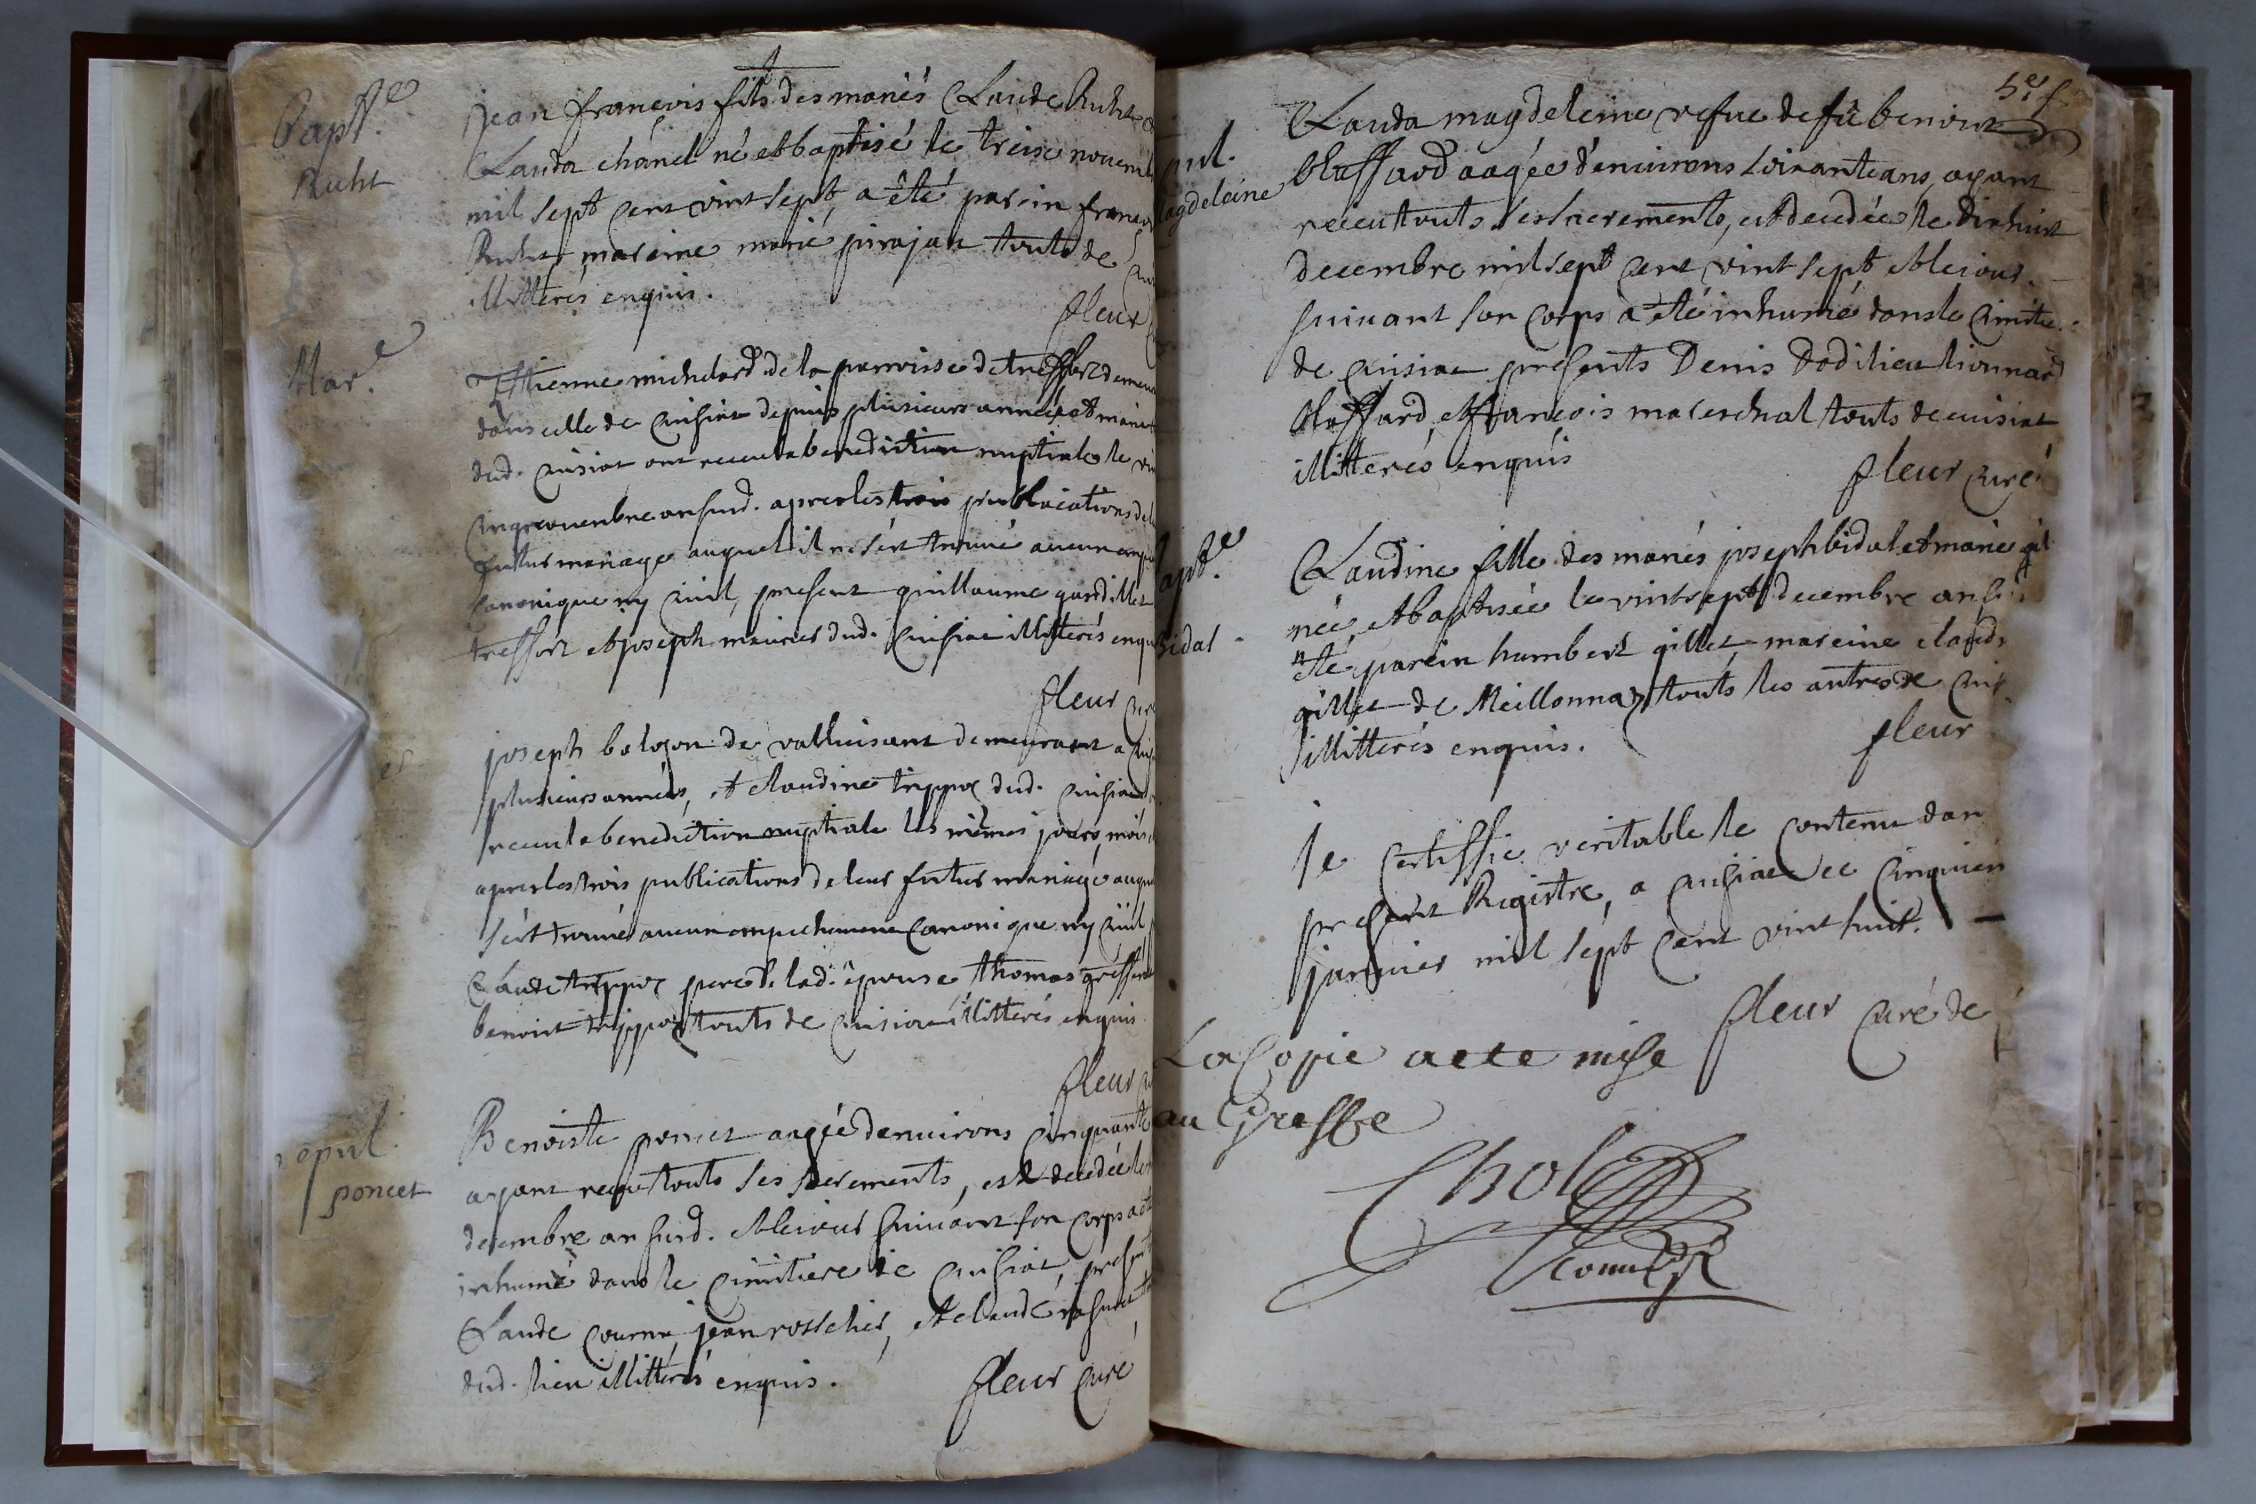 Bapt.e
Ruht
jean françois fils des mariés Claude Ruht
Clauda chanel né et baptisé le treise novem
mil sept cent vint sept, a été parein françois
Ruht, mareine marie pirajan touts de
illitterés enquis.
fleur
Mar.e
Ettienne michelard de la parroisse de treffort demeu
dans celle de cuisiat depuis plusieurs années et marie
dud. cuisiat ont receu la benediction nuptiale le vin
cinq novenbre an susd. apres les trois publications de
futur mariage auquel il ne s'est trouvé aucun empe
canonique ny civil, present guillaume gardillet
treffort et joseph maurier dud. Cuisiat illitterés enqu
fleur cur
joseph balozon de valluisant demeurant a cui
plusieurs années, et claudine trippoz dud. cuisiat
receu la benediction nuptiale les mêmes jours, mois
apres les trois publications de leur futur mariage auqu
s'est trouvé aucun empechement canonique ny civil
Claude trippoz pere de lad. epouse thomas greffet
benoist trippoz touts de cuisiat illitterés enquis
fleur
sepul.
poncet
Benoiste poncet aagée d'environs cinquante
ayant receu touts ses sacrements, est decedée le
decembre an susd. et le jour suivant son corps a été
inhumé dans le cimitiere de cuisiat, present
Claude courna, jean rosselier, et claude
dud. lieu illitterés enquis.
fleur curé
pul.
agdeleine
Clauda magdeleine vefue de fû benoist
Maffard aagée d'environs soixante ans, ayant
receu touts ses sacrements, est decedée le dixhuit
decembre mil sept cent vint sept et le jour
suivant son corps a été inhumé dans le cimitie
de cuisiat presents Denis dodilieu lionnard
Maffard, et françois mareschal touts de cuisiat
illitterés enquis
fleur curé
apt.e
bidal
Claudine fille des mariés joseph bidal et marie gil
née, et baptisée le vint sept decembre an su
été parein humbert gillet, mareine claud
gillet de Meillonnaz touts les autres de cuis
illitterés enquis.
fleur
Je certiffie veritable le contenu dan
present Registre, a cuisiat ce cinquien
janvier mil sept cent vint huit.
fleur curé de
La Copie aete mise
au Greffe
Chol